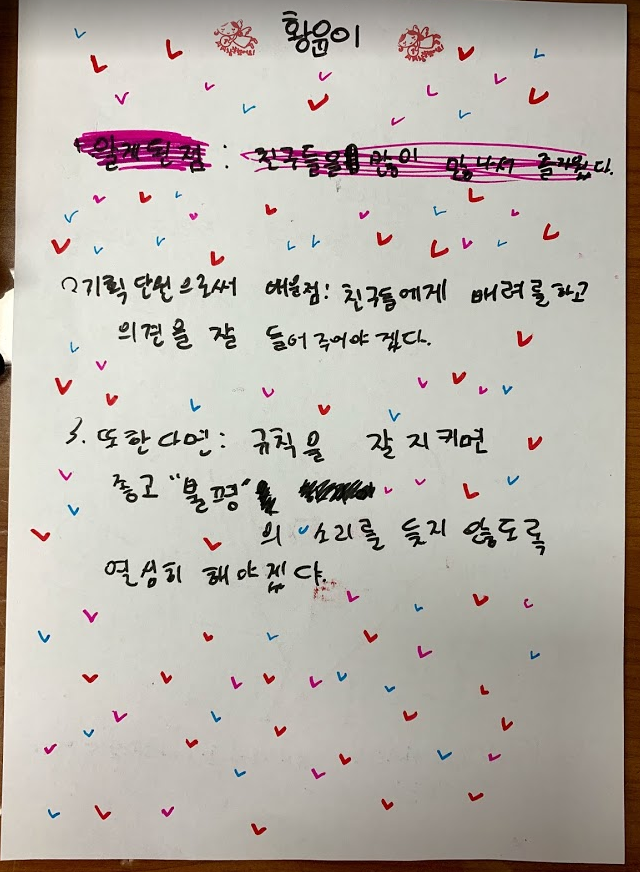 황윤이
1. 알게된점 : 친구들을 많이 만나서 즐거웠다.
2. 기획단원으로써 배울점: 친구들에게 배려를하고
의견을 잘 들어주어야겠다.
3. 또한다면: 규칙을 잘지키면
좋고 "불평"
의 소리를 듣지 않도록
열심히 해야겠다.